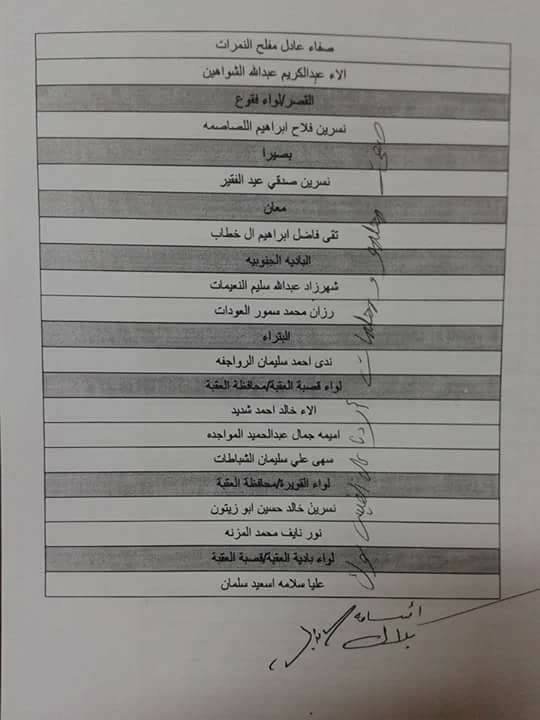 صفاء عادل مفلح النمرات
الاء عبدالكريم عبدالله الشواهين
القصر/لواء فقوع
نسرين فلاح ابراهيم اللصاصمه
بصيرا
نسرين صدقي عيد الفقير
معان
تقى فاضل ابراهيم ال خطاب
الباديه الجنوبيه
شهرزاد عبدالله سليم النعيمات
رزان محمد سمور العودات
البتراء
ندى احمد سليمان الرواجفه
لواء قصبة العقبة/محافظة العقبة
الاء خالد احمد شديد
اميمه جمال عبدالحميد المواجده
سهى علي سليمان الشباطات
لواء القويرة/محافظة العقبة
نسرين خالد حسين ابو زيتون
نور نايف محمد المزنه
لواء بادية العقبة/قصبة العقبة
عليا سلامه اسعيد سلمان